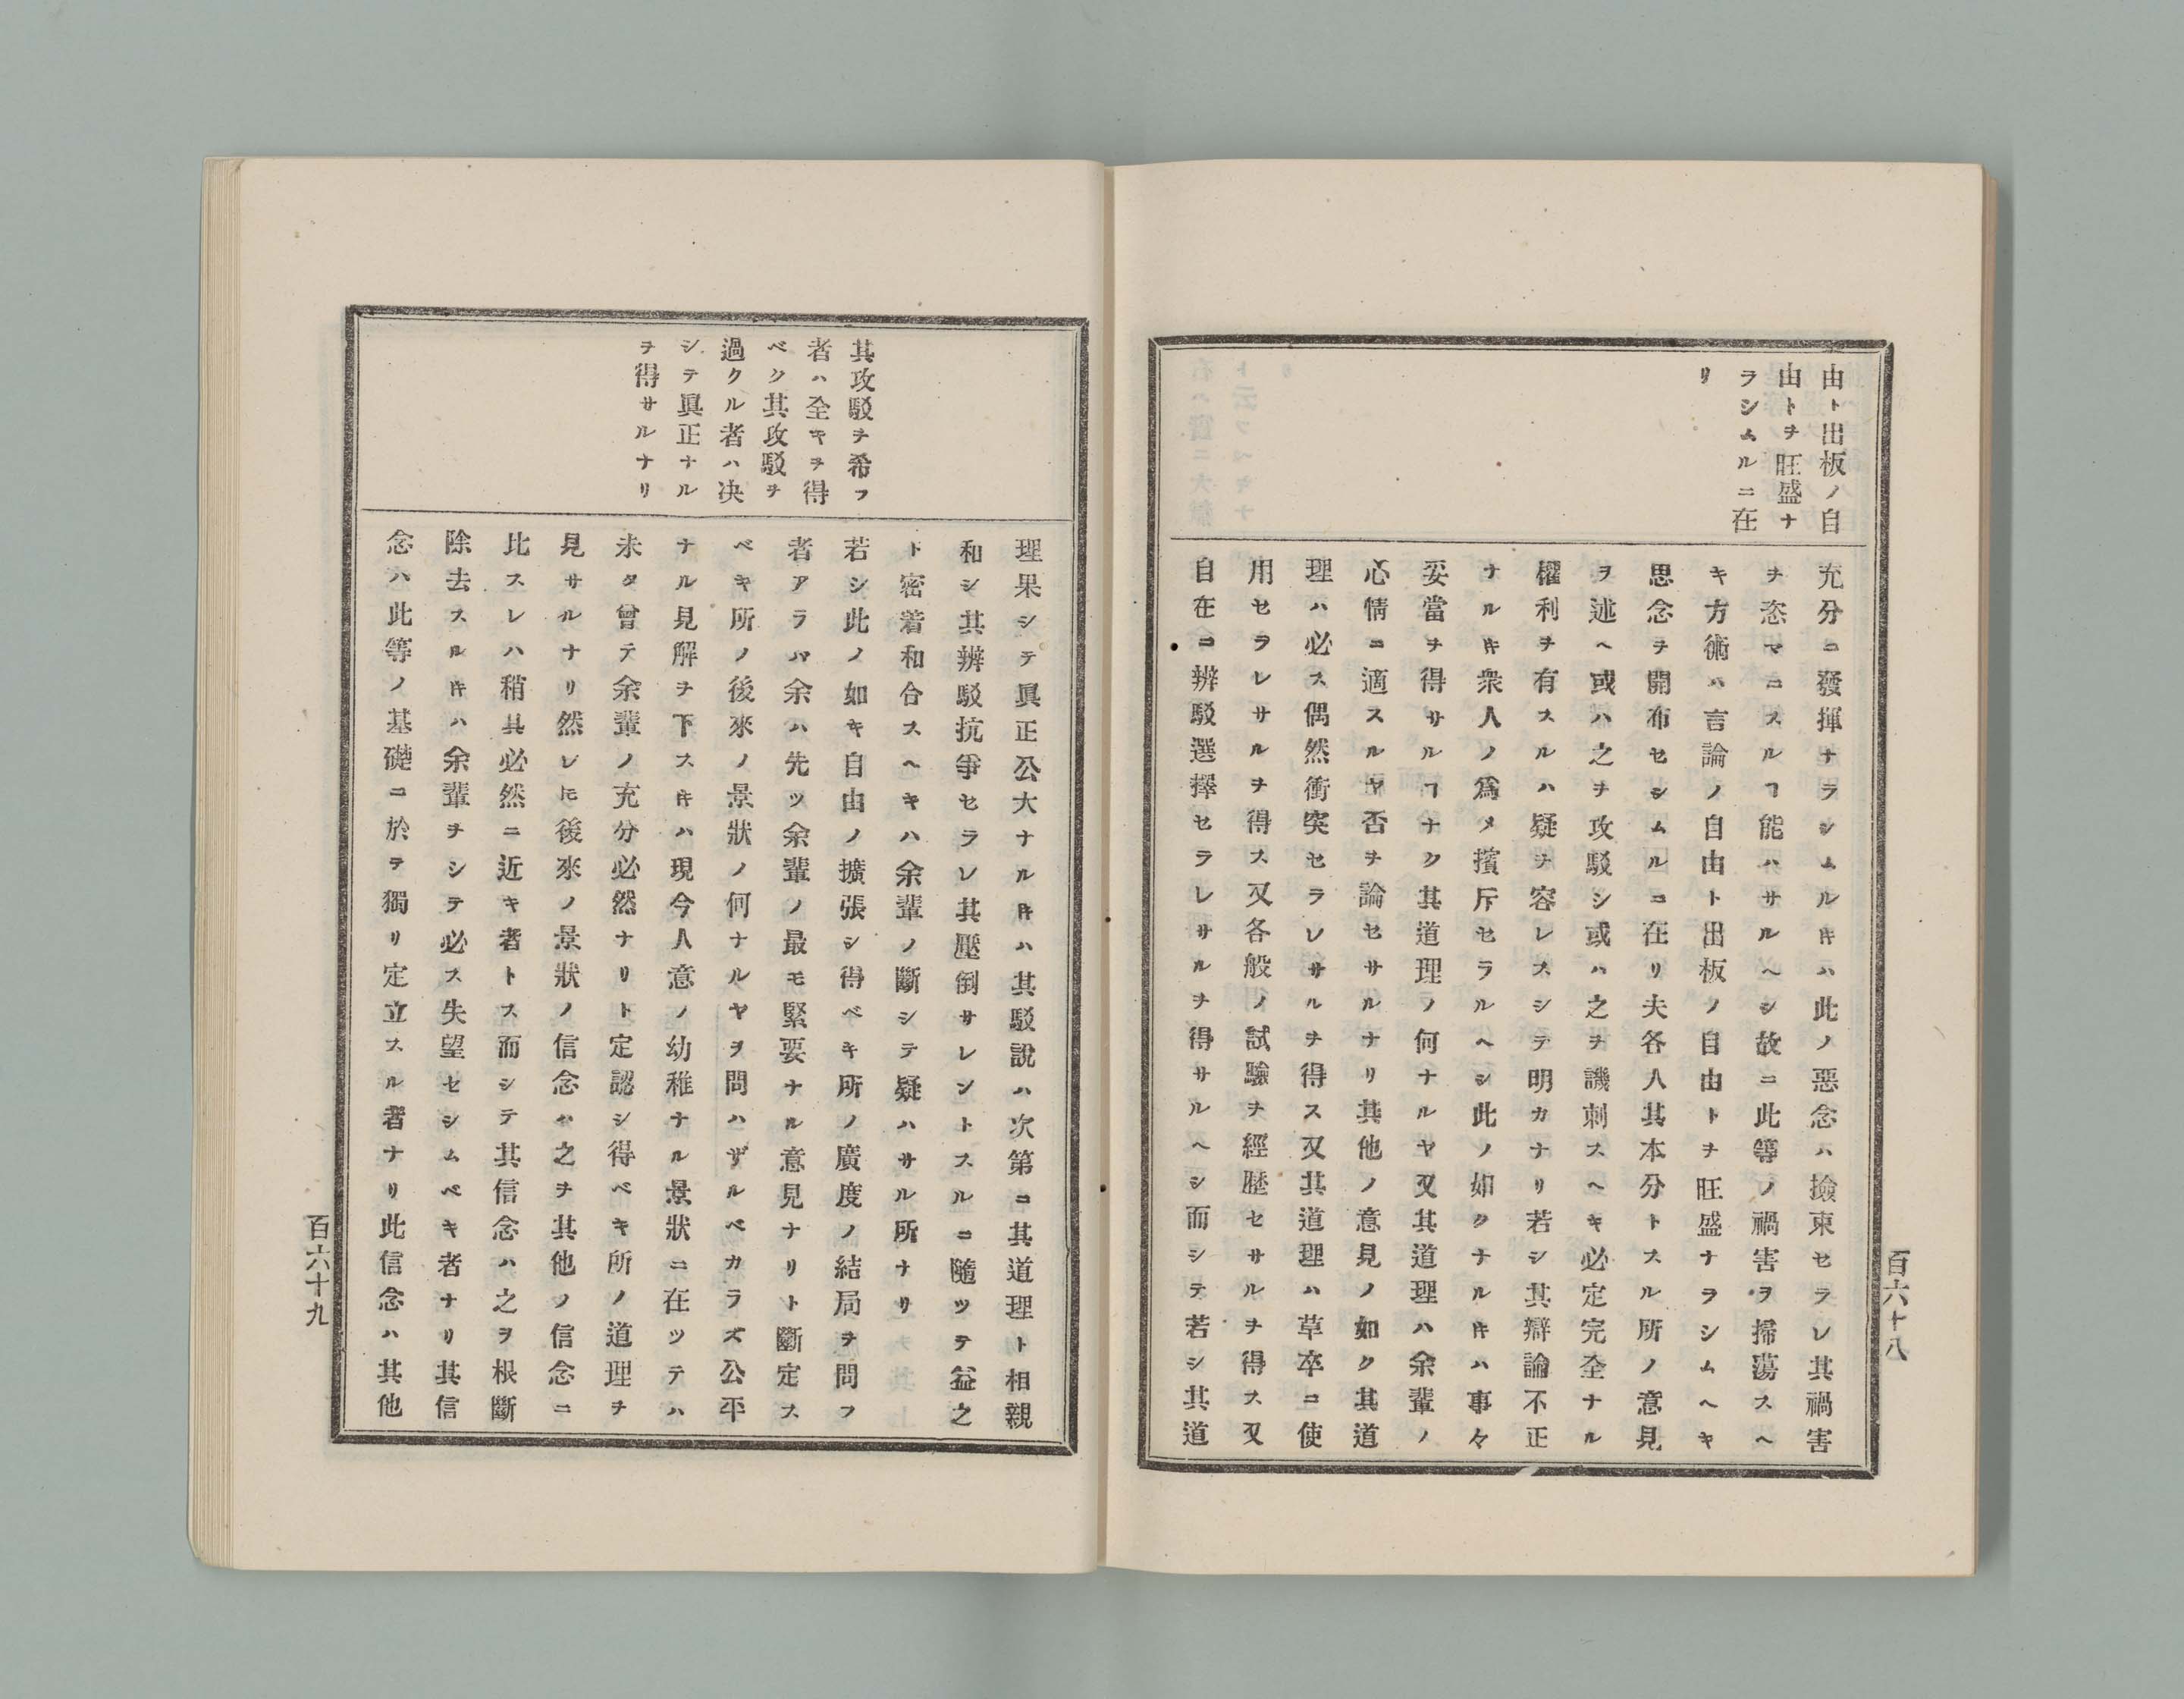 由ト出板ノ自
由トヲ旺盛ナ
ラシムルニ在
リ
充分ニ發揮ナラシムルキハ此ノ惡念ハ撿束セラレ其禍害
ヲ恣マニスルヿ能ハサルヘシ故ニ此等ノ禍害ヲ掃蕩スヘ
キ方術ハ言論ノ自由ト出板ノ自由トヲ旺盛ナラシムヘキ
思念ヲ開布セシムルニ在リ夫各人其本分トスル所ノ意見
ヲ述ヘ或ハ之ヲ攻駁シ或ハ之ヲ譏刺スヘキ必定完全ナル
權利ヲ有スルハ疑ヲ容レスシテ明カナリ若シ其辯論不正
ナルキ衆人ノ爲メ擯斥セラルヘシ此ノ如クナルキハ事々
妥當ヲ得サルヿナク其道理ノ何ナルヤ又其道理ハ余輩ノ
心情ニ適スルヤ否ヲ論セサルナリ其他ノ意見ノ如ク其道
理ハ必ス偶然衝突セラレサルヲ得ス又其道理ハ草卒ニ使
用セラレサルヲ得ス又各般ノ試驗ヲ經歴セサルヲ得ス又
自在ニ辨駁選擇セラレサルヲ得サルヘシ而シテ若シ其道
百六十八
其攻駁ヲ希フ
者ハ全キヲ得
ベク其攻駁ヲ
過クル者ハ决
シテ眞正ナル
ヲ得サルナリ
理果シテ眞正公大ナルキハ其駁說ハ次第ニ其道理ト相親
和シ其辨駁抗爭セラレ其壓倒サレントスルニ隨ツテ益之
ト密着和合スヘキハ余輩ノ斷シテ疑ハサル所ナリ
若シ此ノ如キ自由ノ擴張シ得ベキ所ノ廣度ノ結局ヲ問フ
者アラバ余ハ先ツ余輩ノ最モ緊要ナル意見ナリト斷定ス
ベキ所ノ後來ノ景狀ノ何ナルヤヲ問ハザルベカラズ公平
ナル見解ヲ下スキハ現今人意ノ幼稚ナル景狀ニ在ツテハ
未タ曾テ余輩ノ充分必然ナリト定認シ得ベキ所ノ道理ヲ
見サルナリ然レ𪜈後來ノ景狀ノ信念ハ之ヲ其他ノ信念ニ
比スレハ稍其必然ニ近キ者トス而シテ其信念ハ之ヲ根斷
除去スルキハ余輩ヲシテ必ス失望セシムベキ者ナリ其信
念ハ此等ノ基礎ニ於テ獨リ定立スル者ナリ此信念ハ其他
百六十九